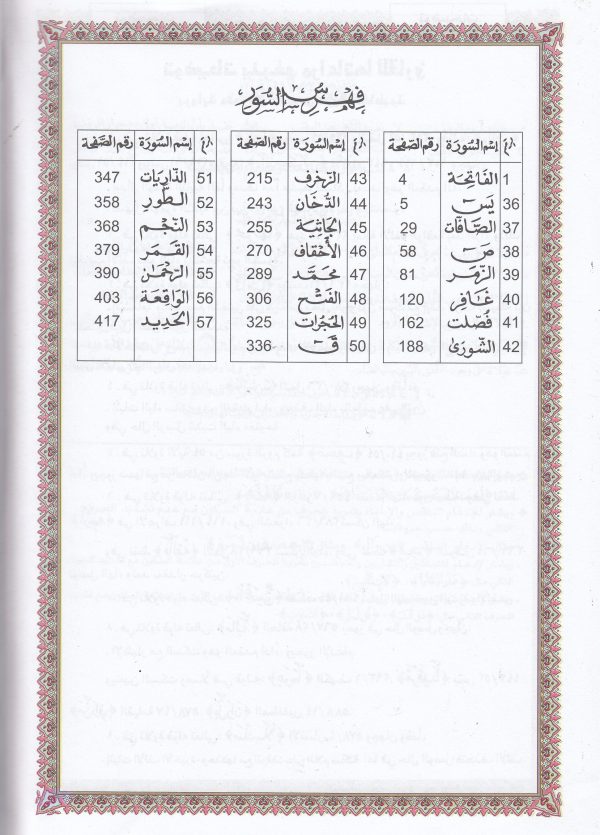 فهرس السور
رقم إسم السورة رقم الصفحة
1 الفَاتِحَة 4
36 يسٓ 5
37 الصَّافَّات 29
38 صٓ 58
39 الزُّمَر 81
40 غَافِر 120
41 فُصِّلَت 162
42 الشُّورَىٰ 188
رقم إسم السورة رقم الصفحة
43 الزُّخرف 215
44 الدُّخَان 243
45 الجَاثِيَة 255
46 الأَحْقَاف 270
47 محَمَّد 289
48 الفَتْح 306
49 الحُجُرَات 325
50 قٓ 336
رقم إسم السورة رقم الصفحة
51 الذَّارِيَات 347
52 الطُّور 358
53 النَّجْم 368
54 القَمَر 379
55 الرَّحْمٰن 390
56 الوَاقِعَة 403
57 الحَدِيد 417